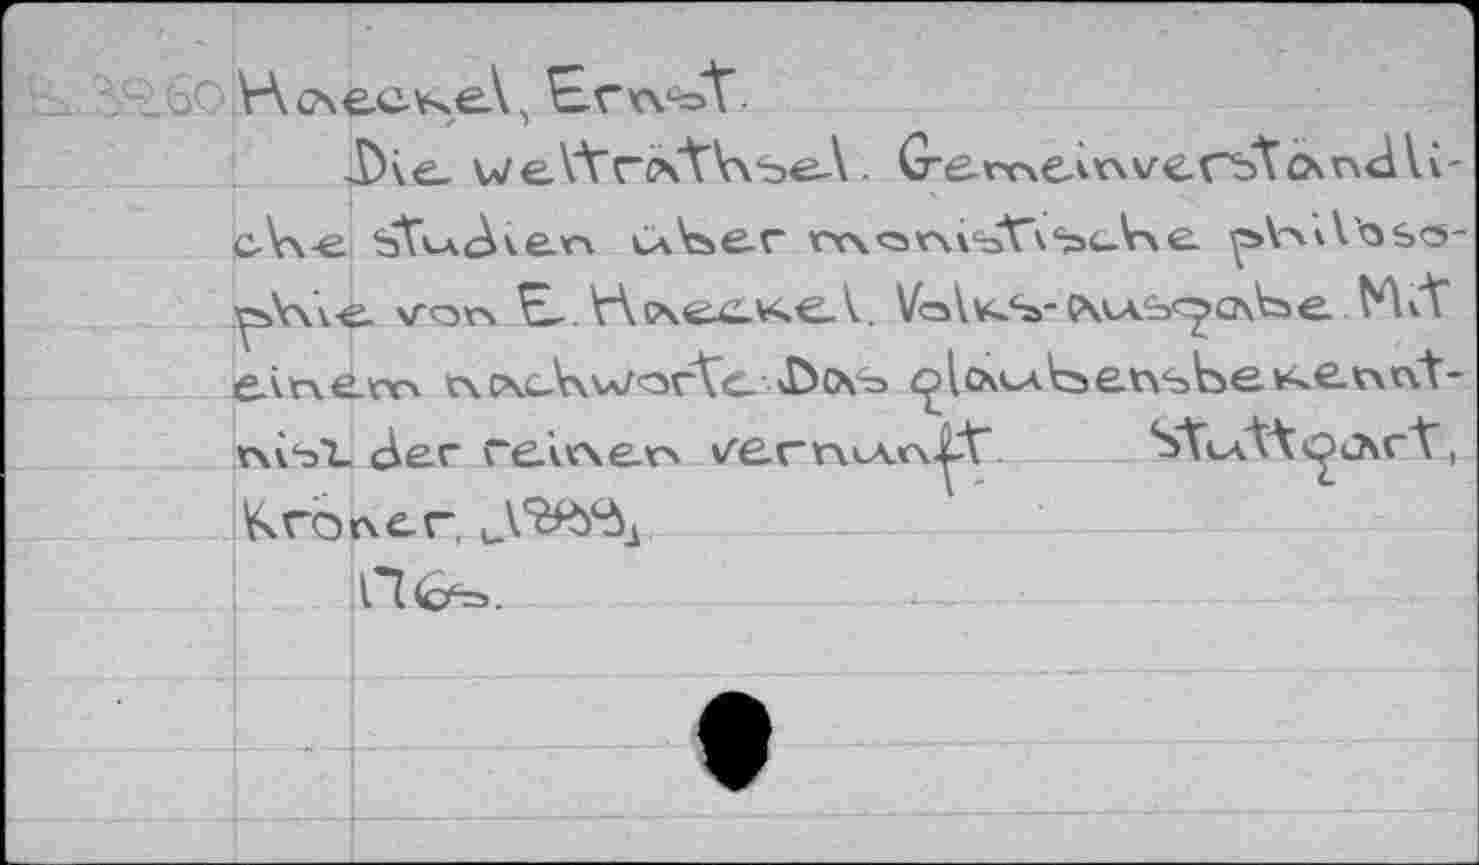 Haeckel, Ernst.
Die welträthsel. Gemeinverständli-
che studien über monistische philoso-
phie von E. Haeckel. Volks-ausgabe. Mit
einem nachworte: Das glaubensbekennt-
niss der reinen vernunft. Stuttgart,
Kröner,
176 s.